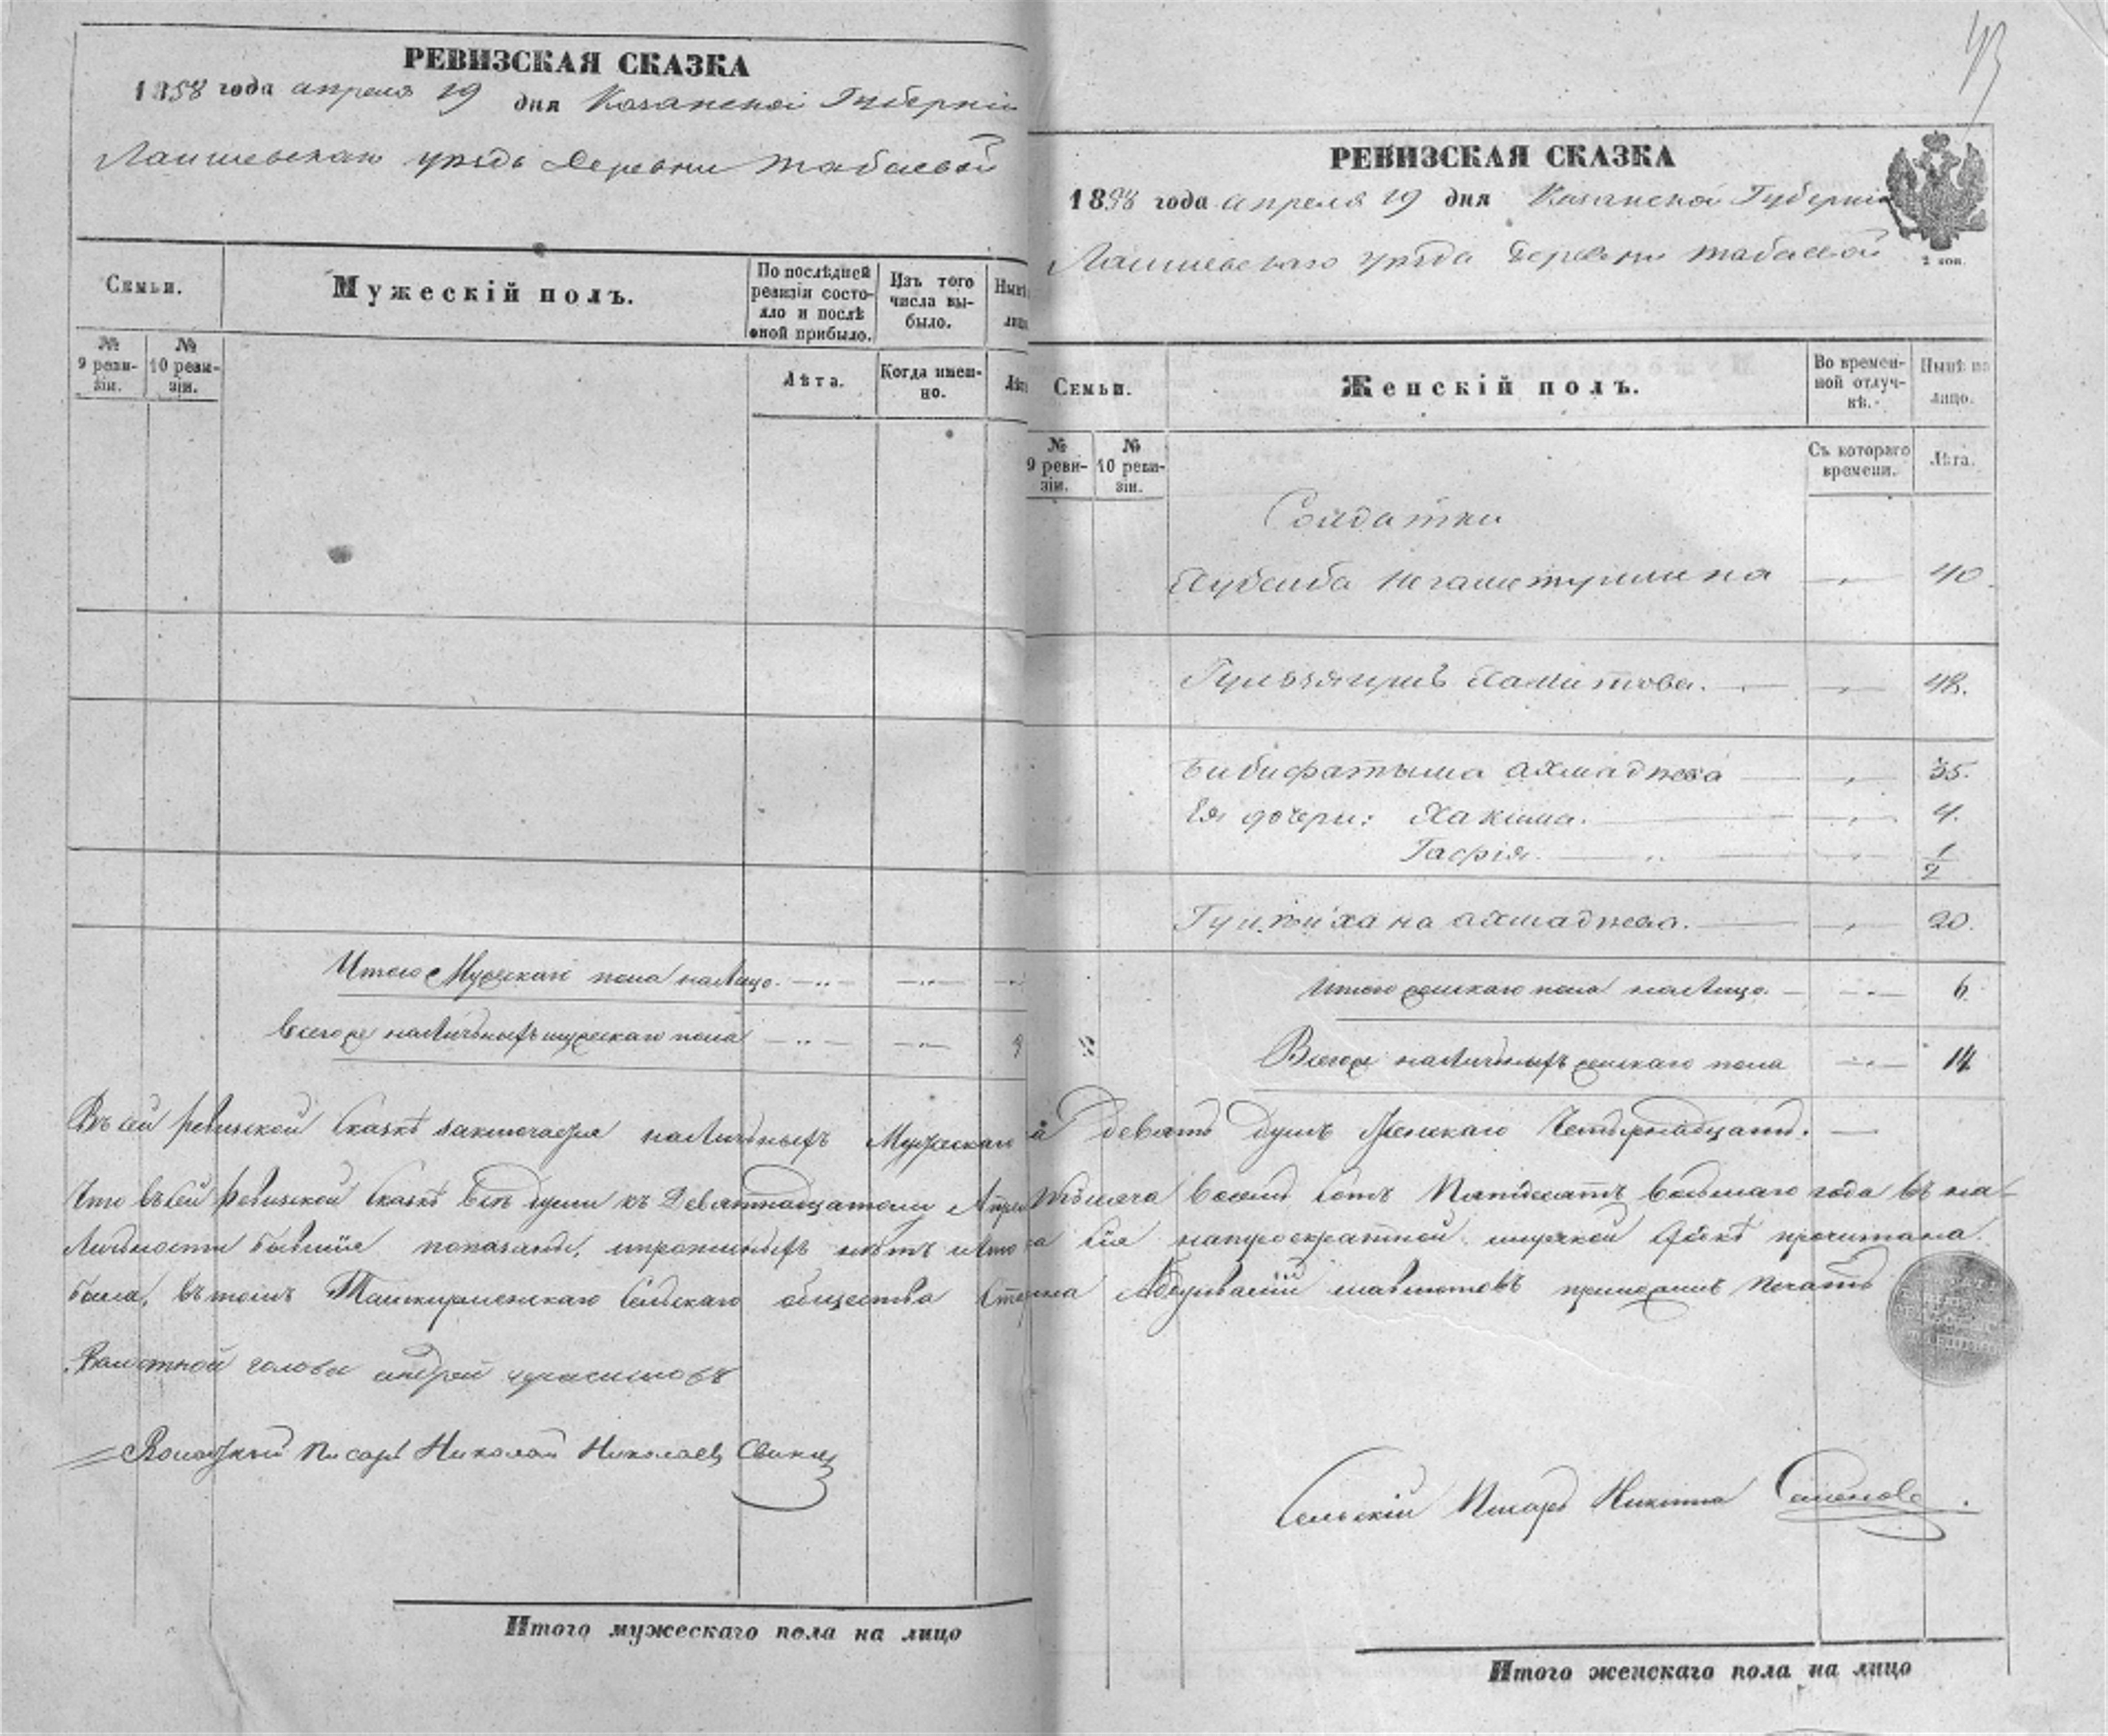 РЕВИЗСКАЯ СКАЗКА
1858 года апреля 19 дня Казанской Губерніи
Лаишевскаго уезда Деревни Табаевой
Семьи.
Мужескій полъ.
По послѣдней ревизіи состояло и послѣ оной прибыло.
Изъ того числа выбыло.
Нынѣ
лицо
№ 9 ревизіи.
№ 10 ревизіи.
Лѣта.
Когда именно.
Лѣта
Итого Мужескаго пола налицо.
Всего же наличныхъ мужескаго пола 9
Въ сей ревизской сказкѣ заключается наличныхъ Мужескаго
Что въ сей ревизской сказкѣ всѣ души къ Девятнадцатому Апре
личности бывшіе показаны, и прописныхъ нѣтъ и что
была, въ томъ Ташкирменскаго Сельскаго общества
Волостной голова андрей
Волостной Писарь Николай Николаевъ
Итого мужескаго пола на лицо
43
РЕВИЗСКАЯ СКАЗКА
1858 года апреля 19 дня Казанской Губерніи
Лаишевскаго уезда Деревни Табаевой
2 коп.
Семьи.
Женскій полъ.
Во временной отлучкѣ.
Нынѣ на лицо.
№ 9 ревизіи.
№ 10 ревизіи.
Съ котораго времени.
Лѣта.
Солдатки
Хубсиба 40.
Хамитова. 48.
Бибифатыма ахмадиева 35.
Ея дочери: Хакима. 4.
Гафія. 1/2
ахмадиева. 20.
Итого женскаго пола налицо. 6
Всего же наличныхъ женскаго пола 14
девять душъ Женскаго Четырнадцать.
тысяча восемь сотъ Пятидесятъ восьмаго года въ на-
сія на мірской прочитана
приложилъ печать
Сельскій Писарь Никита Семеновъ.
Итого женскаго пола на лицо